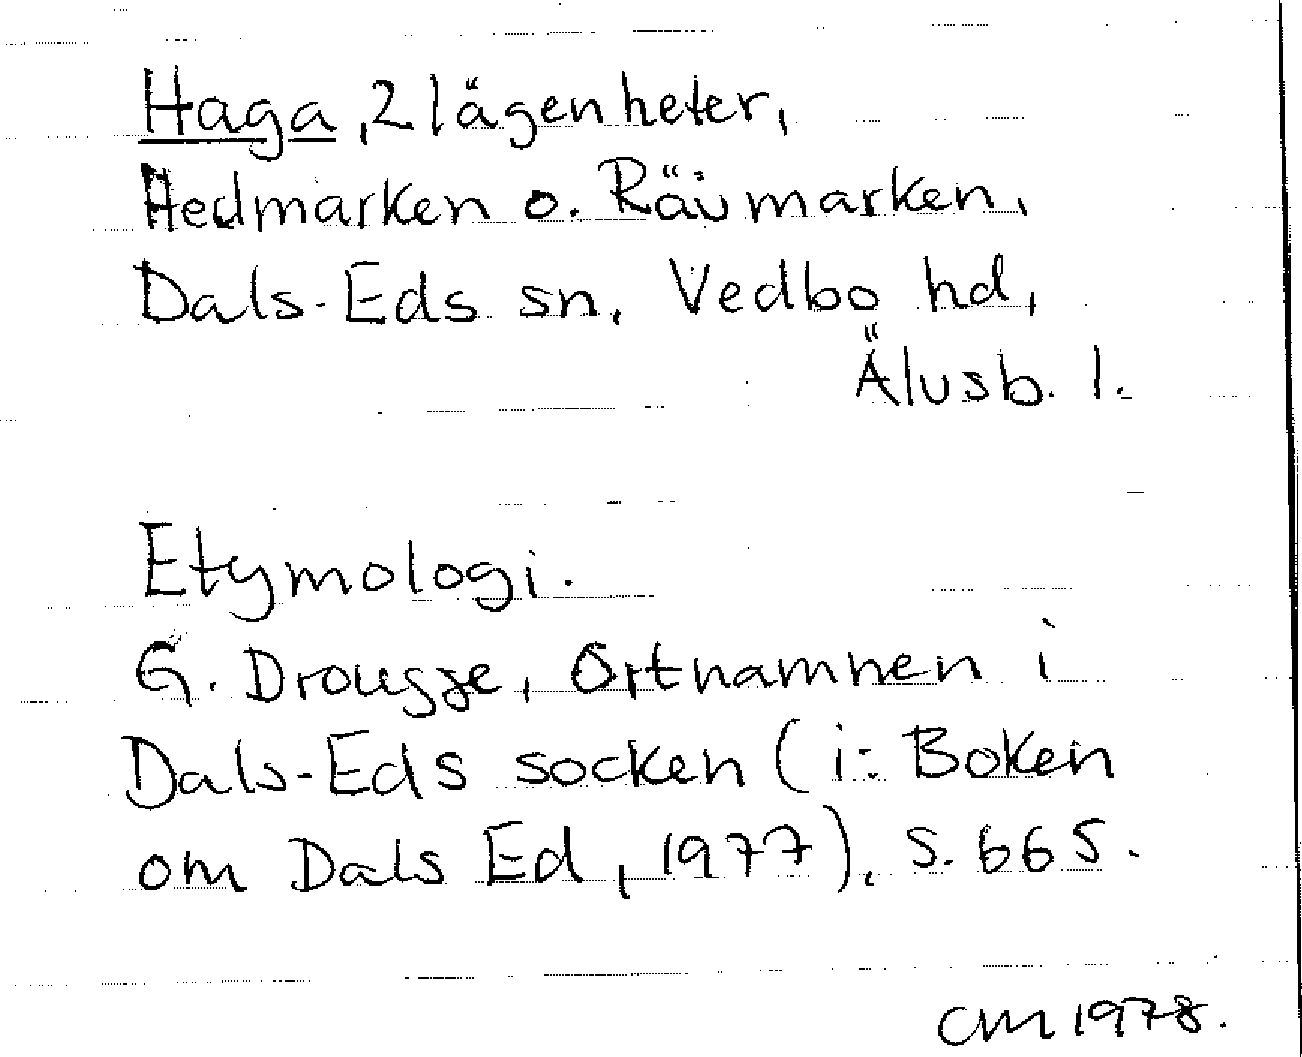 Haga, 2 lägenheter,
Hedmarken o. Rävmarken,
Dals-Eds sn, Vedbo hd,
Älvsb. l.
Etymologi.
G. Drougge, Ortnamnen i
Dals-Eds socken (i: Boken
om Dals Ed, 1977), s. 665.
CM 1978.